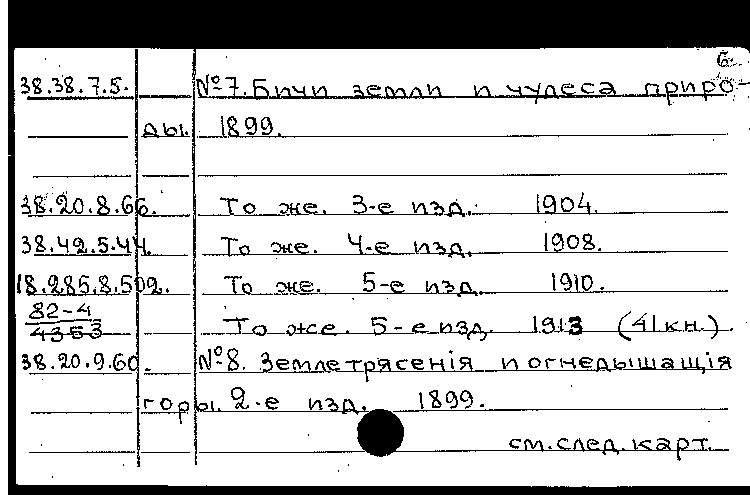 6.
38.38.7.5. №7. Бичи земли и чудеса приро-
ды. 1899.
38.20.8.66. То же. 3-е изд. 1904.
38.42.5.44. То же. 4-е изд. 1908.
18.285.8.502. То же. 5-е изд. 1910.
82-4
4353 То же. 5-е изд. 1913 (41 кн.)
38.20.9.60. №8. Землетрясенія и огнедышащія
горы. 2-е изд. 1899.
см. след. карт.